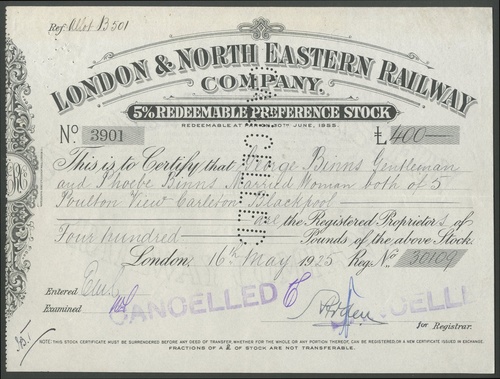 Ref. Allot B 501
LONDON & NORTH EASTERN RAILWAY
COMPANY.
5% REDEEMABLE PREFERENCE STOCK
REDEEMABLE AT PAR ON 30TH JUNE, 1955.
No 3901
£400—
This is to Certify that George Binns Gentleman
and Phoebe Binns Married Woman both of 5
Poulton View Carleton Blackpool
are the Registered Proprietors of
Four hundred Pounds of the above Stock.
London, 16th May 1925 Reg. No 30109
Entered
Examined
CANCELLED
CANCELLED
for Registrar.
NOTE: THIS STOCK CERTIFICATE MUST BE SURRENDERED BEFORE ANY DEED OF TRANSFER, WHETHER FOR THE WHOLE OR ANY PORTION THEREOF, CAN BE REGISTERED, OR A NEW CERTIFICATE ISSUED IN EXCHANGE.
FRACTIONS OF A £ OF STOCK ARE NOT TRANSFERABLE.